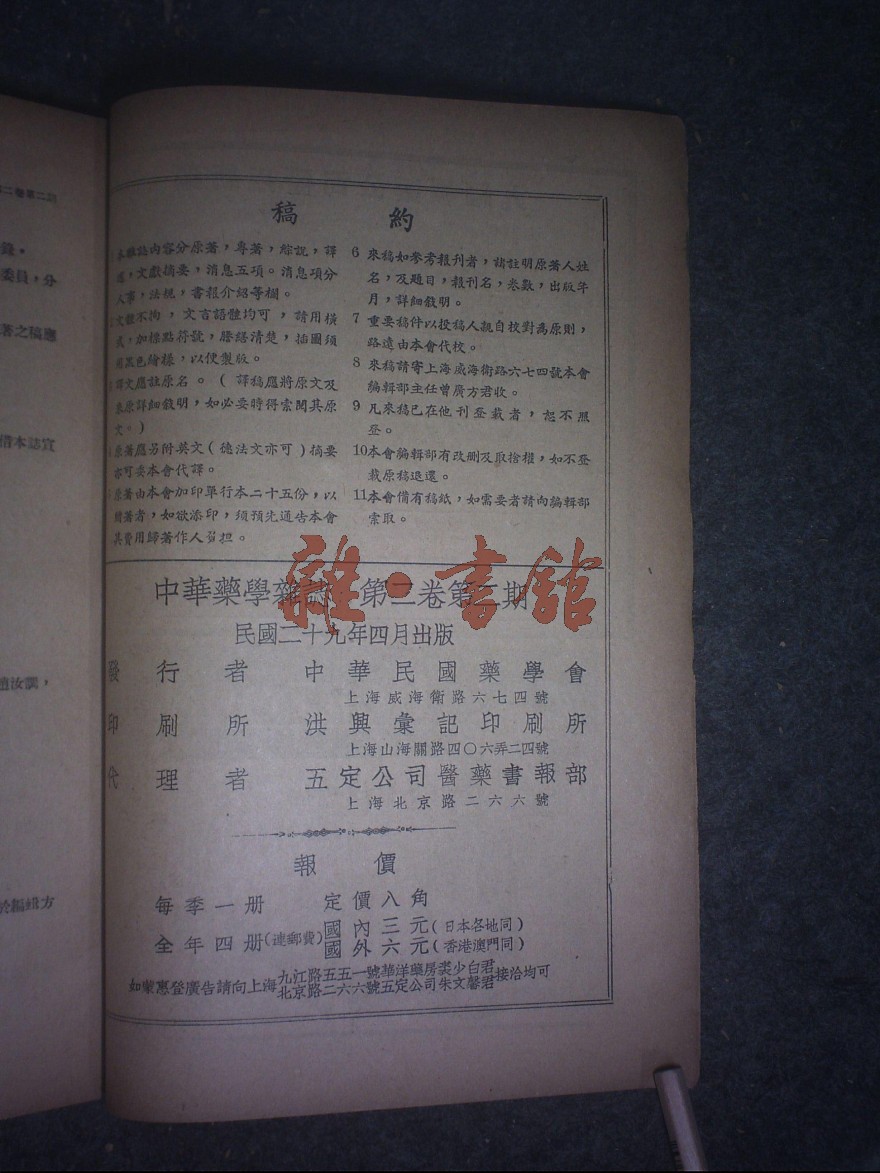 二卷第二期
錄。
委員，分
著之稿應
借本誌宣
趙汝調，
於編緝方
稿約
本雜誌內容分原著，專著，綜說，譯
述，文獻摘要，消息五項。消息項分
人事，法規，書報介紹等欄。
文體不拘，文言語體均可，請用橫
式，加標點符號，謄繕清楚，插圖須
用黑色繪樣，以便製版。
譯文應註原名。（譯稿應將原文及
來原詳細敘明，如必要時得索閱其原
文。）
原著應另附英文（德法文亦可）摘要
亦可委本會代譯。
原著由本會加印單行本二十五份，以
贈著者，如欲添印，須預先通告本會
其費用歸著作人負担。
6 來稿如參考報刊者，請註明原著人姓
名，及題目，報刊名，卷數，出版年
月，詳細敘明。
7 重要稿件以投稿人親自校對爲原則，
路遠由本會代校。
8 來稿請寄上海威海衛路六七四號本會
編輯部主任曾廣方君收。
9 凡來稿已在他刊登載者，恕不照
登。
10本會編輯部有改刪及取捨權，如不登
載原稿退還。
11本會備有稿紙，如需要者請向編輯部
索取。
中華藥學雜誌 第二卷第二期
雜·書館
民國二十九年四月出版
發行者 中華民國藥學會
上海威海衛路六七四號
印刷所 洪興彙記印刷所
上海山海關路四〇六弄二四號
代理者 五定公司醫藥書報部
上海北京路二六六號
報價
每季一册 定價八角
全年四册(連郵費) 國內三元(日本各地同)
國外六元(香港澳門同)
如蒙惠登廣告請向上海九江路五五一號華洋藥房裘少白君
北京路二六六號五定公司朱文馨君接洽均可